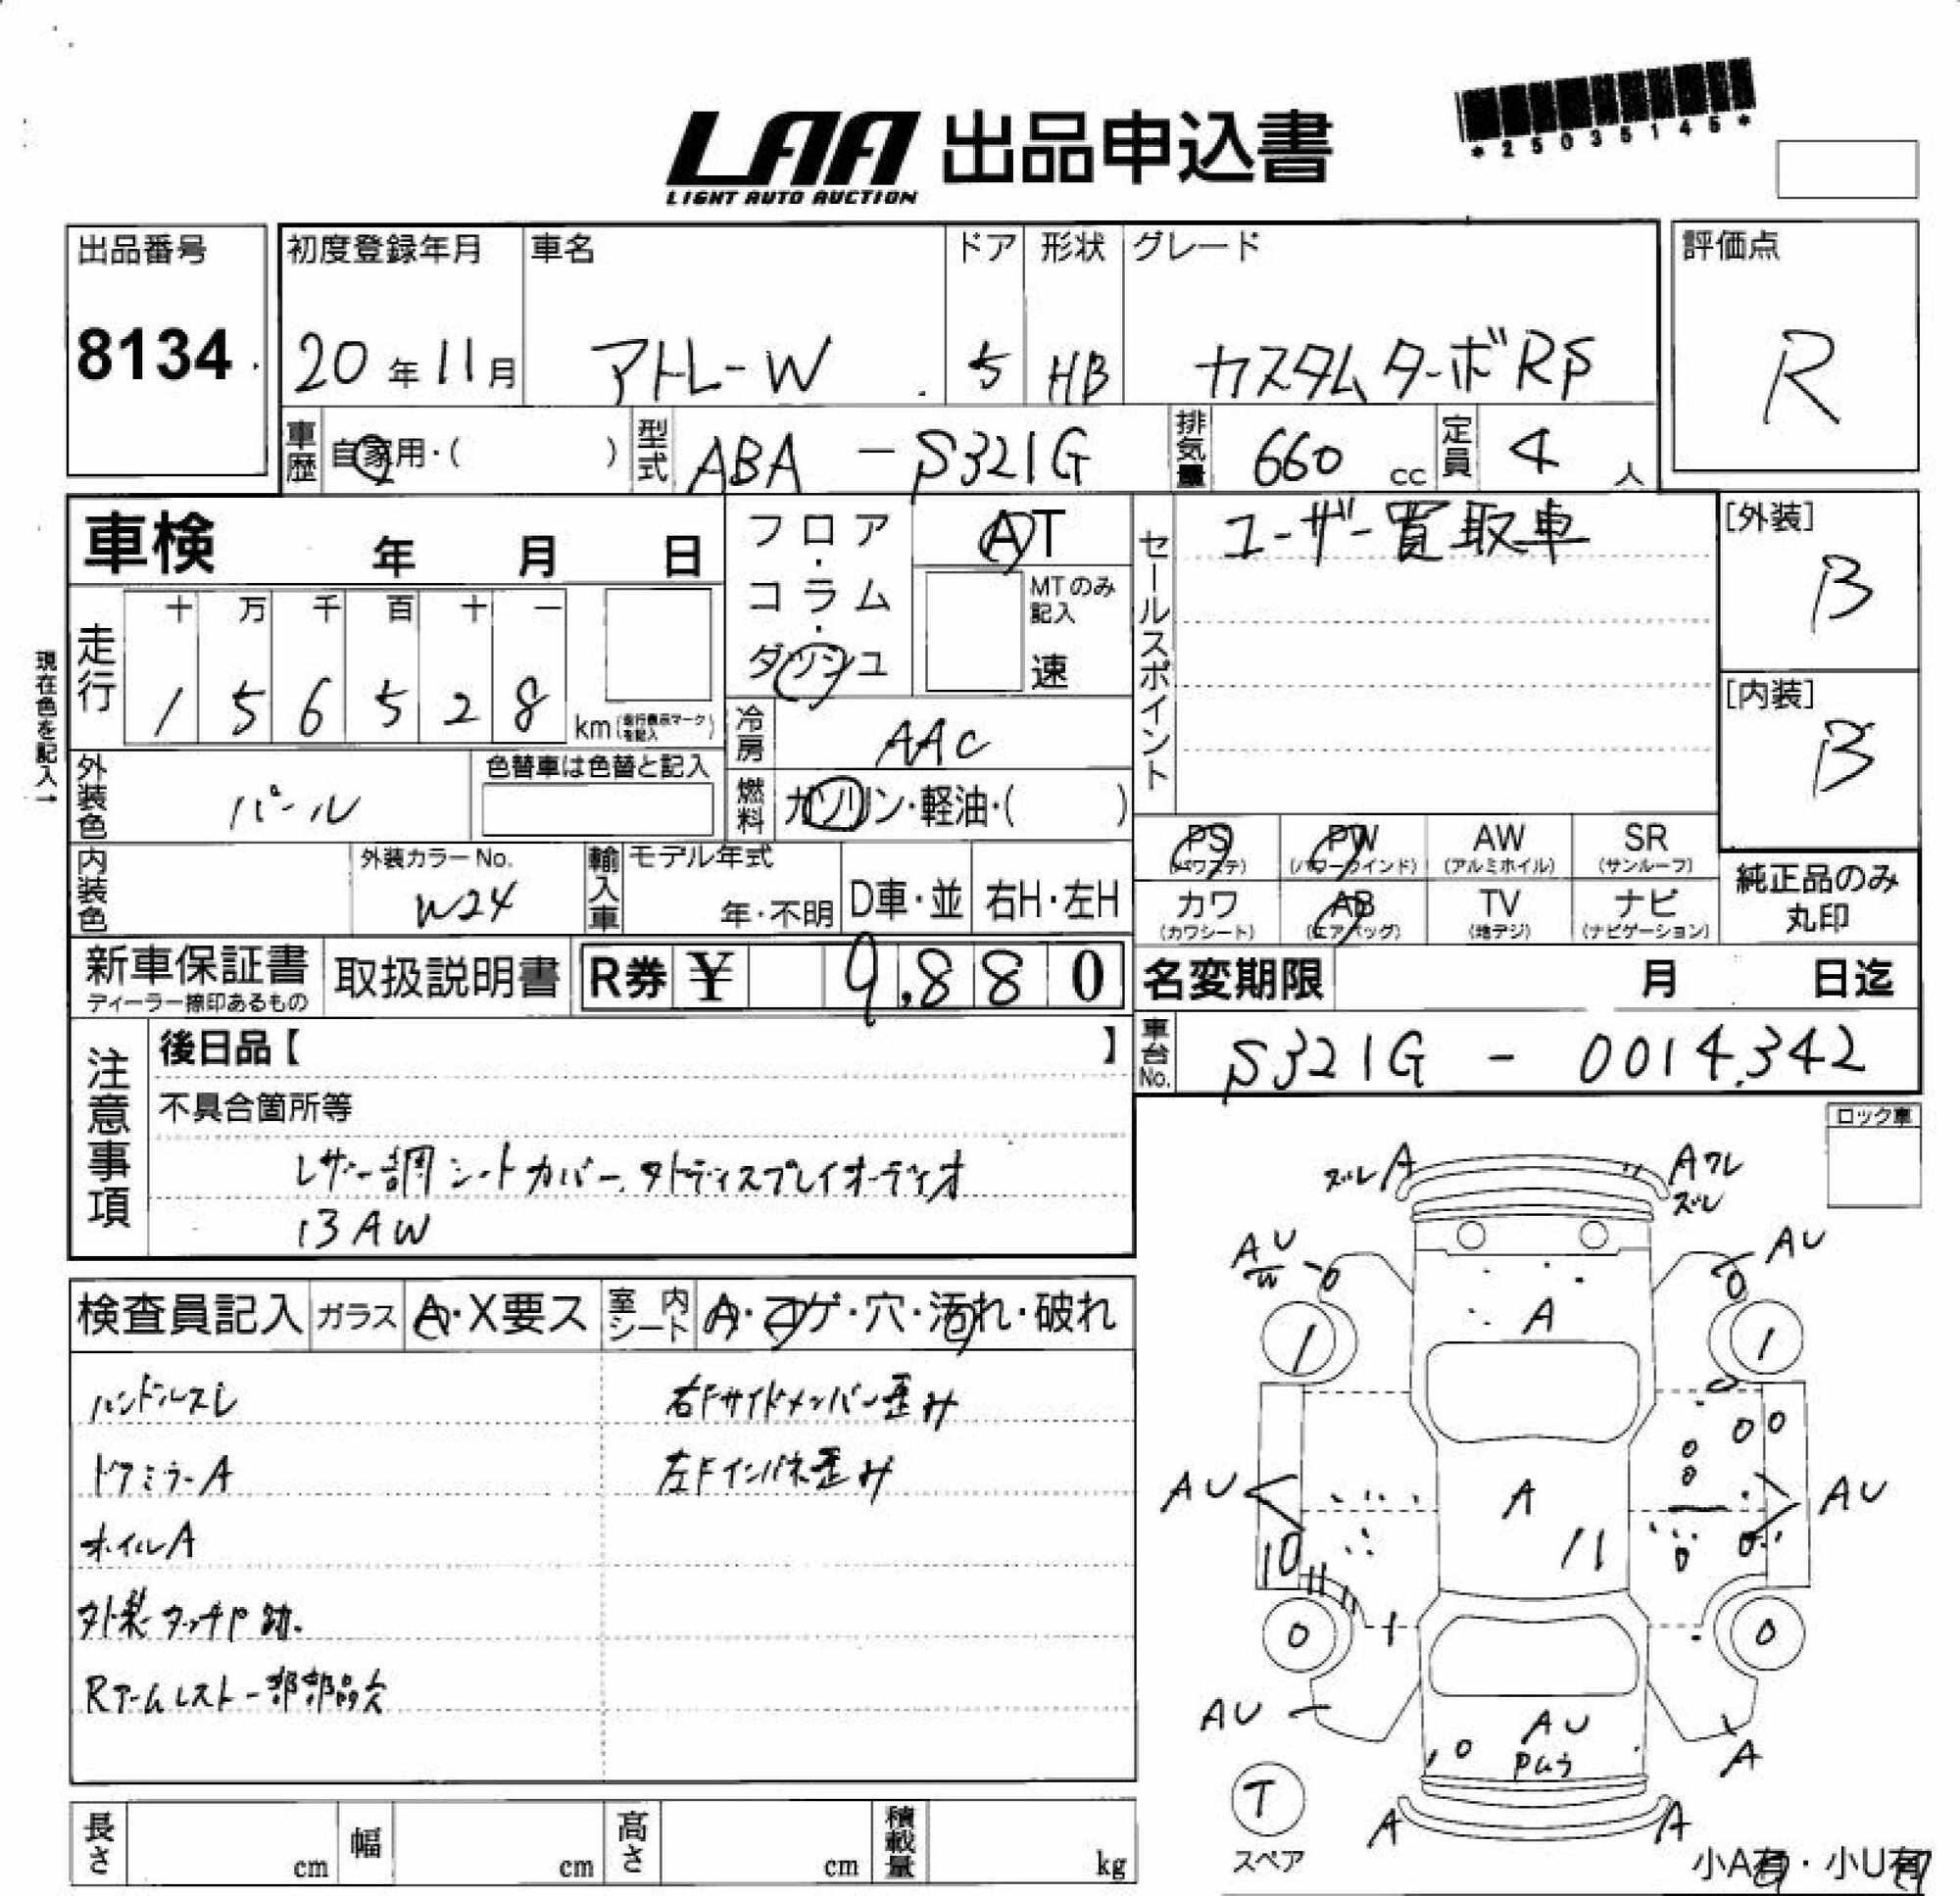 LAA 出品申込書
LIGHT AUTO AUCTION
*25035145*
出品番号
8134
初度登録年月
20年11月
車名
アトレーW
ドア
5
形状
HB
グレード
カスタムターボRS
評価点
R
車歴 自家用・( )
型式 ABA - S321G
排気量 660 cc
定員 4 人
車検 年 月 日
フロア・コラム・ダッシュ
AT
MTのみ記入
速
セールスポイント
ユーザー買取車
[外装]
B
[内装]
B
現在色を記入→
走行
十 万 千 百 十 一
1 5 6 5 2 8 km(走行表示マークを記入)
冷房 AAC
外装色 パール
色替車は色替と記入
燃料 ガソリン・軽油・( )
PS (パワステ)
PW (パワーウインド)
AW (アルミホイル)
SR (サンルーフ)
カワ (カワシート)
AB (エアバッグ)
TV (地デジ)
ナビ (ナビゲーション)
純正品のみ
丸印
内装色
外装カラーNo.
W24
輸入車
モデル年式
年・不明
D車・並
右H・左H
新車保証書
ディーラー捺印あるもの
取扱説明書
R券 ¥ 9,880
名変期限 月 日迄
車台No. S321G - 0014342
注意事項
後日品【 】
不具合箇所等
レザー調シートカバー、外ディスプレイオーディオ
13AW
ロック車
検査員記入
ガラス A・X要ス
室内シート A・コゲ・穴・汚れ・破れ
ハンドルスレ
ドアミラーA
ホイルA
外装タッチP跡.
Rアームレスト一部部品欠
右Fサイドメンバー歪み
左Fインパネ歪み
ズレ A
A ワレ
ズレ
AU
W
AU
A
1
1
AU
A
AU
10
0
0
AU
AU
Pムラ
A
T
スペア
A
A
小A有・小U有
長さ cm
幅 cm
高さ cm
積載量 kg